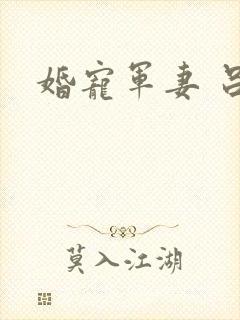 婚寵軍妻
莫入江湖